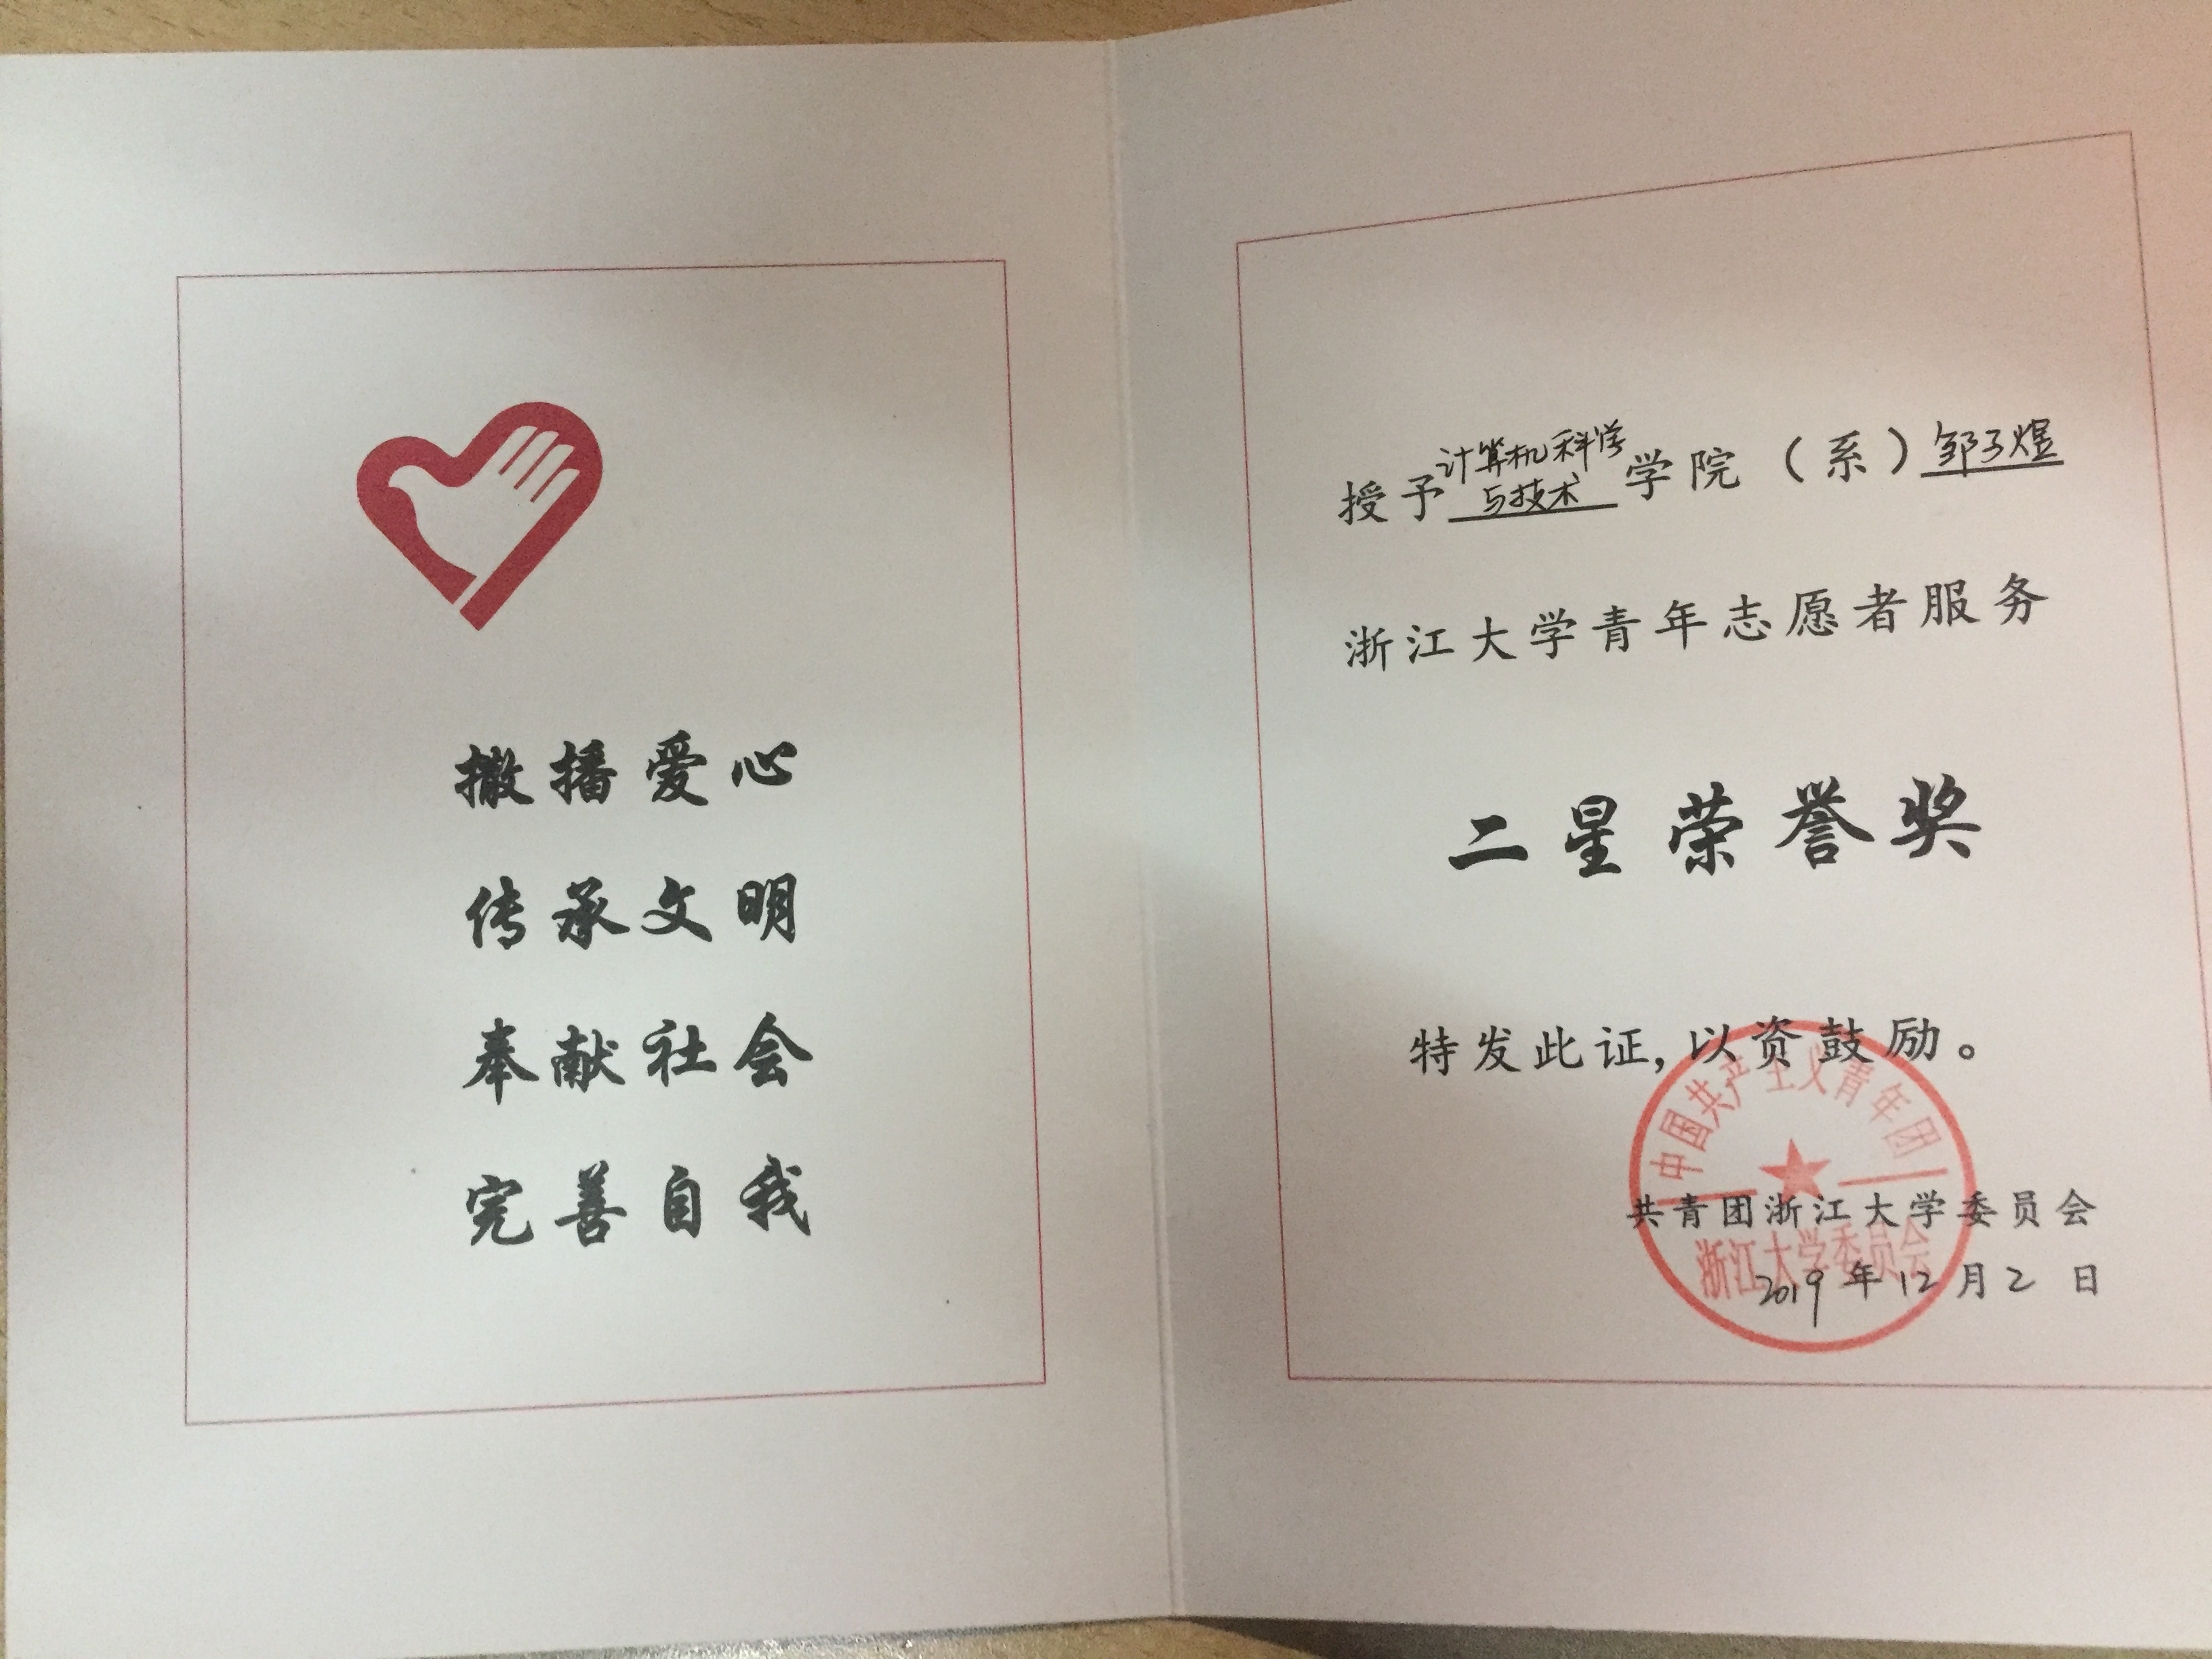 撒播爱心
传承文明
奉献社会
完善自我
授予计算机科学与技术学院（系）邹子煜
浙江大学青年志愿者服务
二星荣誉奖
特发此证,以资鼓励。
中国共产主义青年团
共青团浙江大学委员会
浙江大学委员会
2019年12月2日